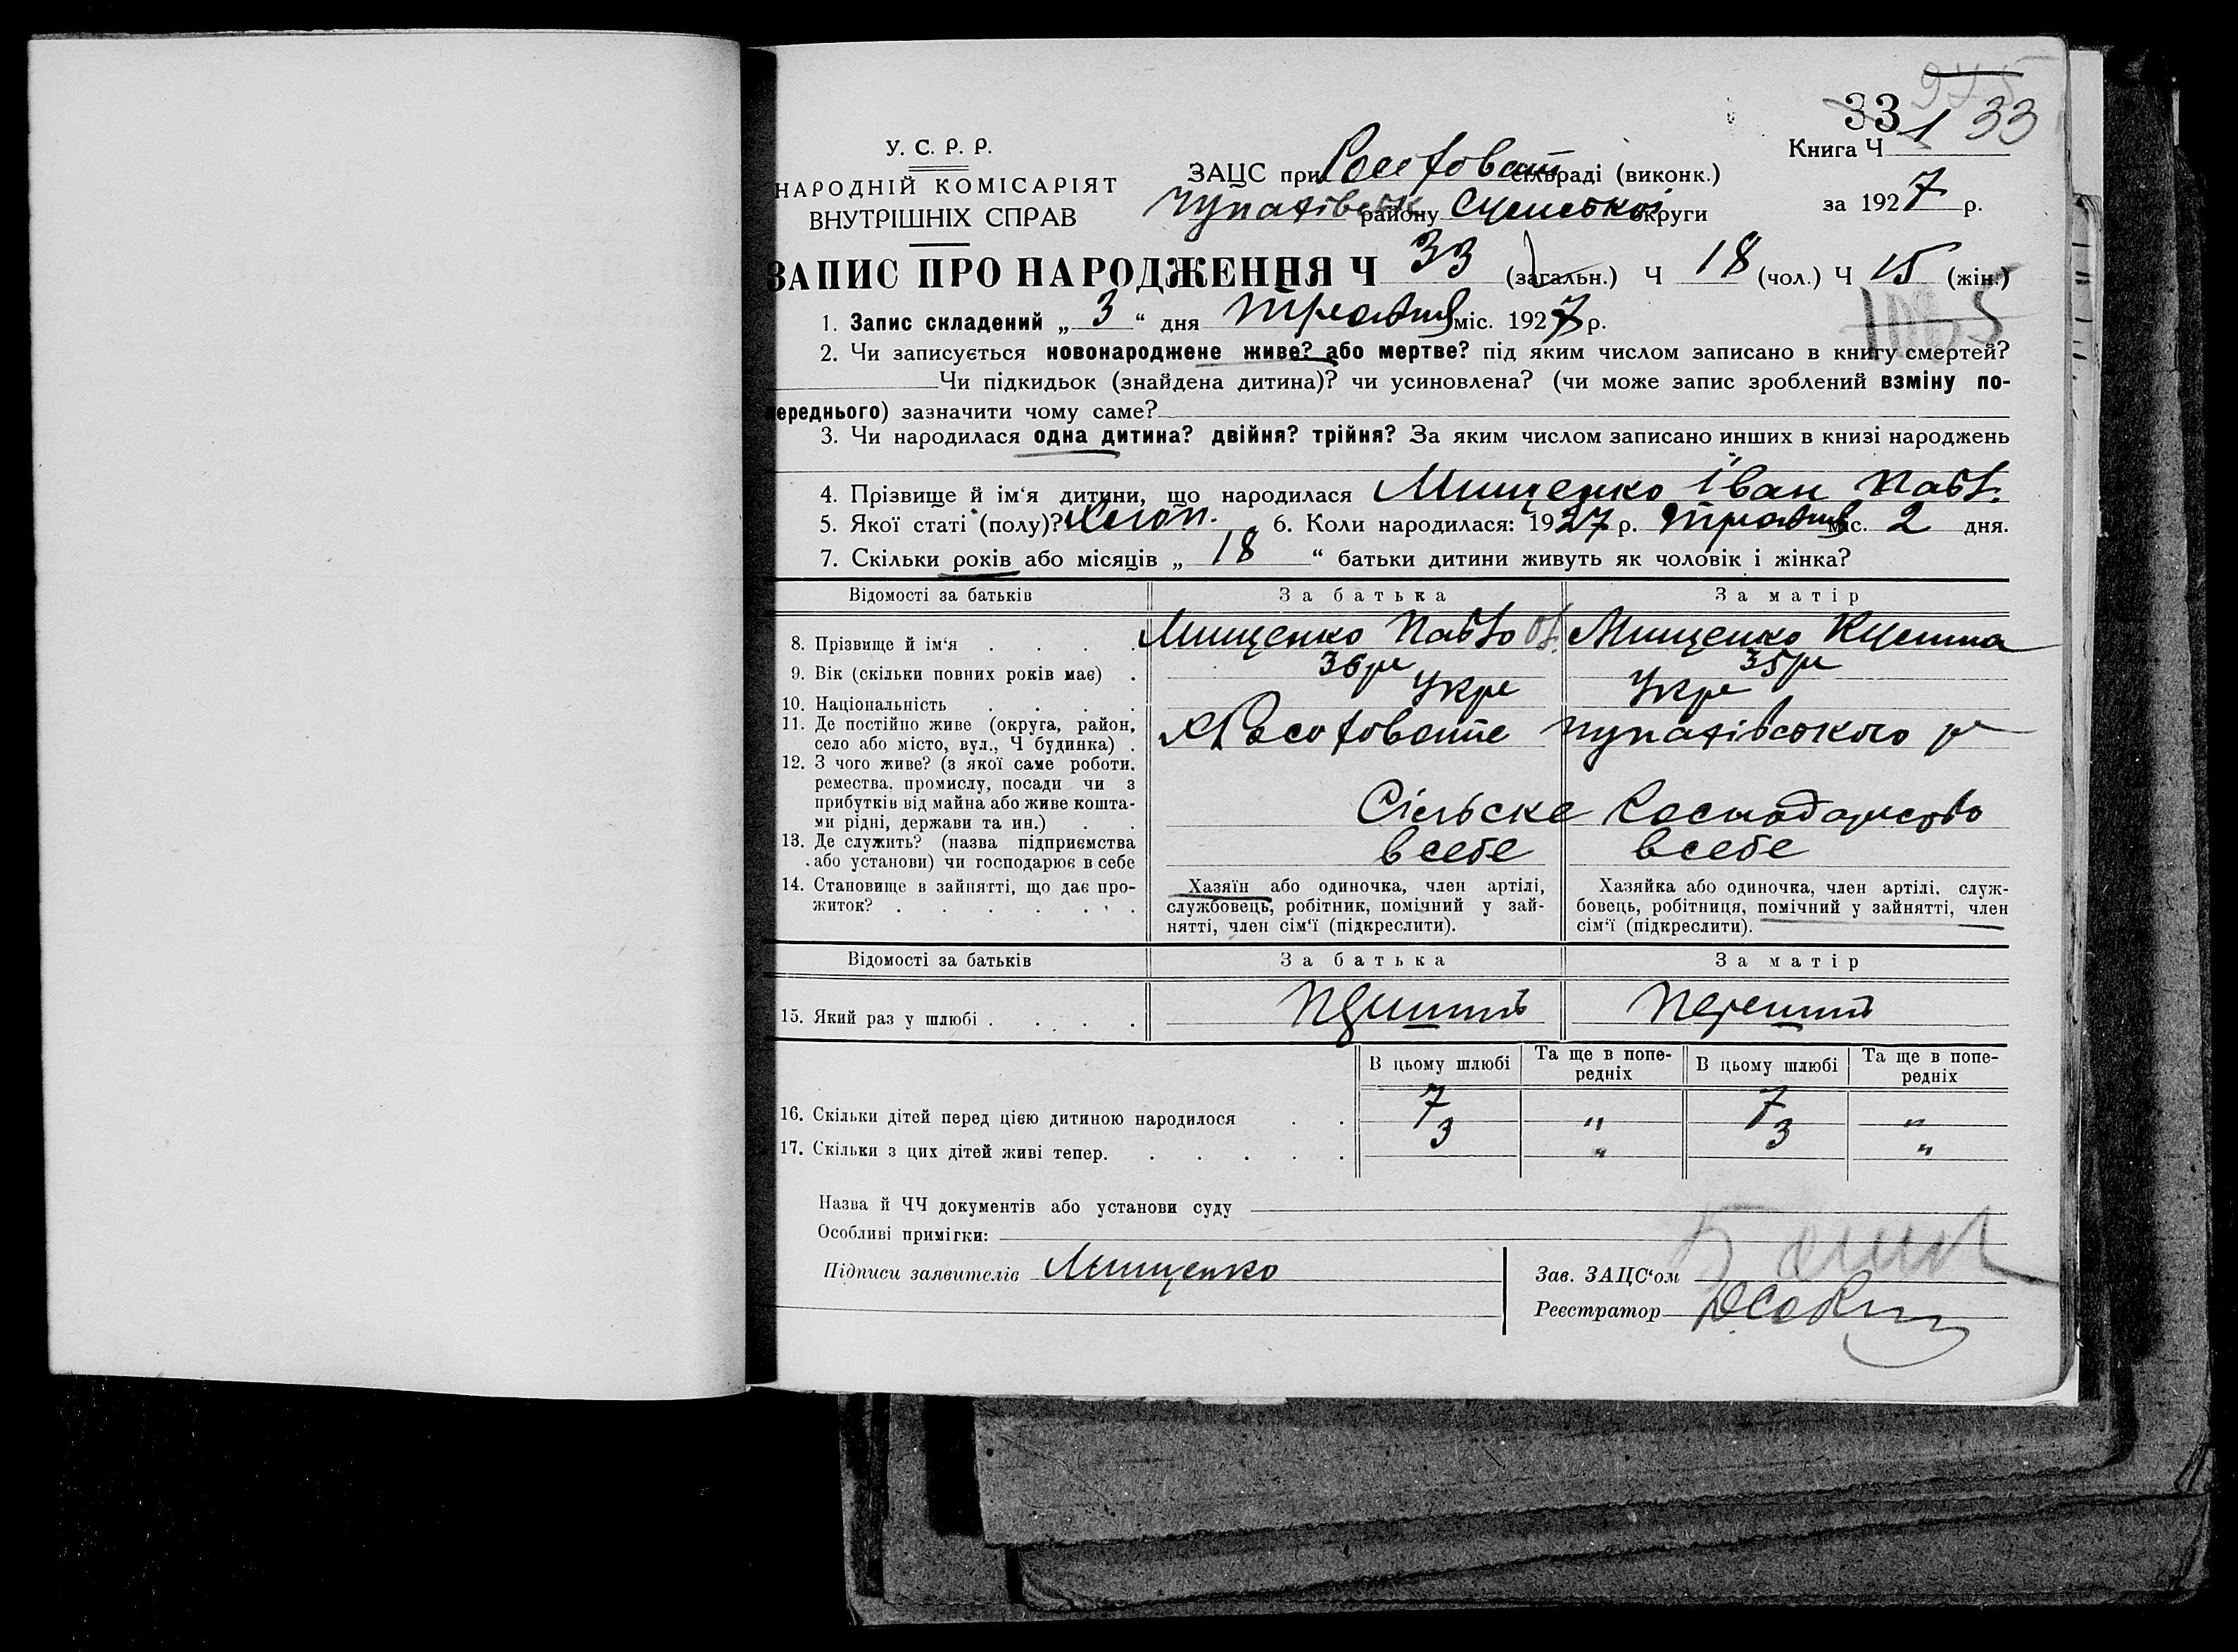 33 33
У. С. Р. Р.
НАРОДНІЙ КОМІСАРІЯТ
ВНУТРІШНІХ СПРАВ
ЗАЦС при сільраді (виконк.)
району Сумської округи
Книга Ч 1
за 1927 р.
ЗАПИС ПРО НАРОДЖЕННЯ Ч 33 (загальн.) Ч 18 (чол.) Ч 15 (жін.)
1. Запис складений „ 3 “ дня травня міс. 1927 р.
2. Чи записується новонароджене живе? або мертве? під яким числом записано в книгу смертей?
Чи підкидьок (знайдена дитина)? чи усиновлена? (чи може запис зроблений взміну по-
переднього) зазначити чому саме?
3. Чи народилася одна дитина? двійня? трійня? За яким числом записано инших в книзі народжень
4. Прізвище й ім‘я дитини, що народилася Мищенко Іван Павл.
5. Якої статі (полу)? Хлоп. 6. Коли народилася: 1927 р. травня міс. 2 дня.
7. Скільки років або місяців „ 18 “ батьки дитини живуть як чоловік і жінка?
Відомості за батьків За батька За матір
8. Прізвище й ім‘я . . . . Мищенко Павло Мищенко
9. Вік (скільки повних років має) . 36 р 35 р
10. Національність . . . . Укр Укр
11. Де постійно живе (округа, район,
село або місто, вул., Ч будинка) .
12. З чого живе? (з якої саме роботи,
ремества, промислу, посади чи з
прибутків від майна або живе кошта-
ми рідні, держави та ин.) . . Сільське Господарство
13. Де служить? (назва підприємства
або установи) чи господарює в себе в себе в себе
14. Становище в зайнятті, що дає про-
житок? . . . . . . .
Хазяїн або одиночка, член артілі,
службовець, робітник, помічний у зай-
нятті, член сім‘ї (підкреслити).
Хазяйка або одиночка, член артілі, служ-
бовець, робітниця, помічний у зайнятті, член
сім‘ї (підкреслити).
Відомості за батьків За батька За матір
15. Який раз у шлюбі . . . .
В цьому шлюбі Та ще в попе- В цьому шлюбі Та ще в попе-
редніх редніх
16. Скільки дітей перед цією дитиною народилося . . 7 „ 7 „
17. Скільки з цих дітей живі тепер. . . . . . 3 „ 3 „
Назва й ЧЧ документів або установи суду
Особливі примітки:
Підписи заявителів Мищенко Зав. ЗАЦС‘ом
Реєстратор